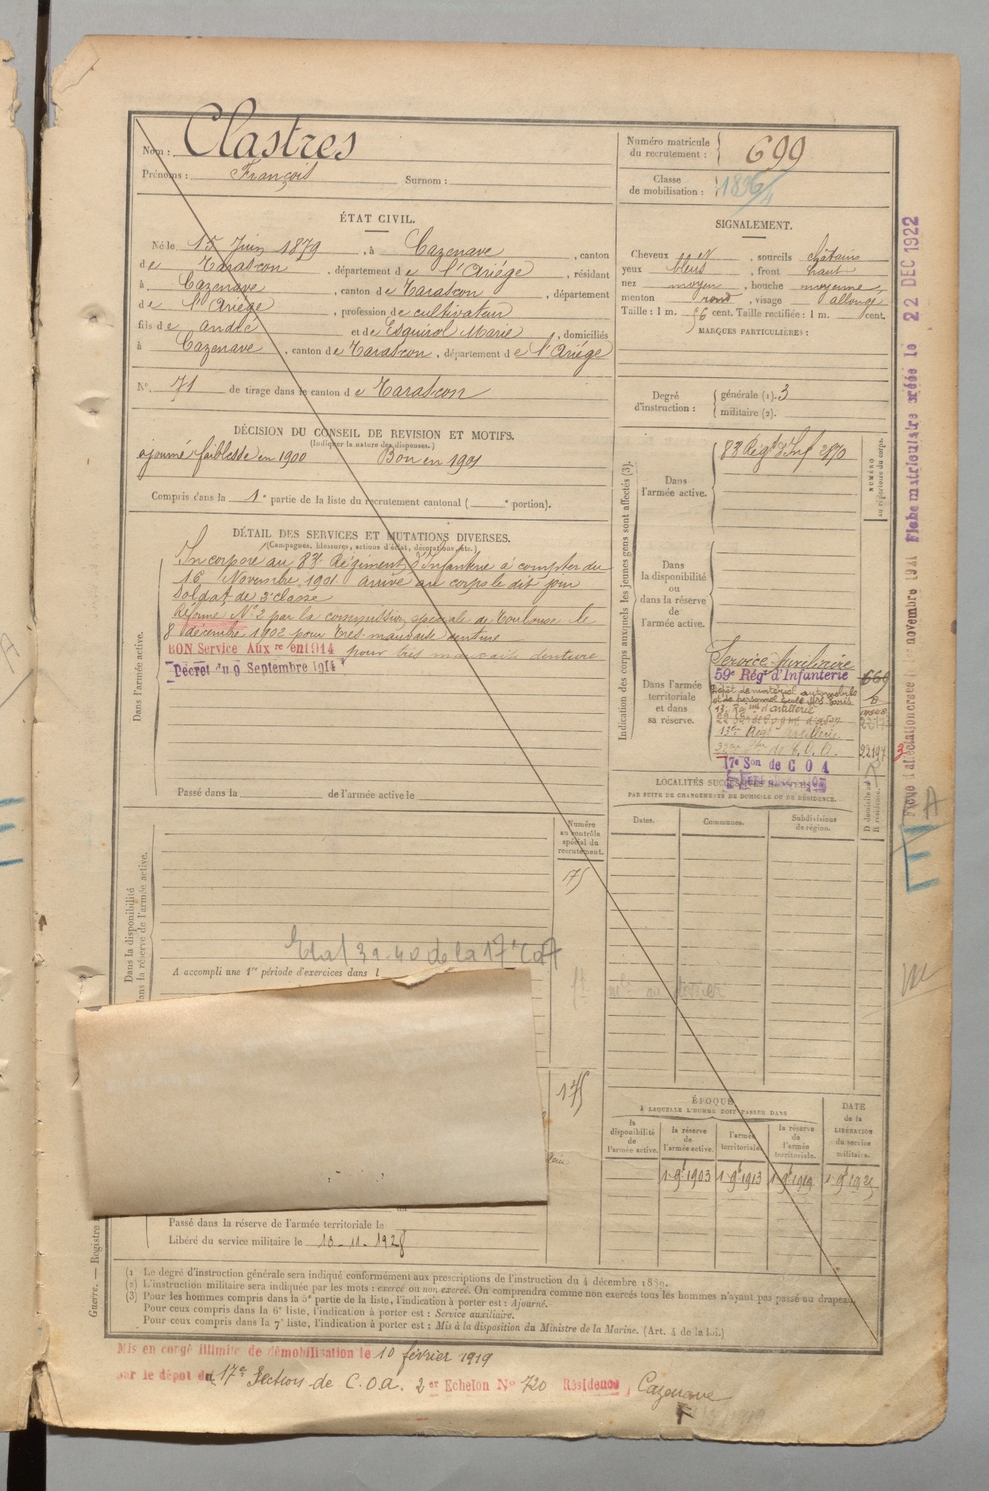 Nom : Clastres
Prénoms : François Surnom :
Numéro matricule
du recrutement : 699
Classe
de mobilisation : 1896/4
ÉTAT CIVIL.
Né le 15 Juin 1879, à Cazenave, canton
de Tarascon, département de l'Ariége, résidant
à Cazenave, canton de Tarascon, département
de l'Ariége, profession de cultivateur
fils de André et de Esquirol Marie, domiciliés
à Cazenave, canton de Tarascon, département de l'Ariége
N° 71 de tirage dans le canton de Tarascon
SIGNALEMENT.
Cheveux et, sourcils châtains
yeux bleus, front haut
nez moyen, bouche moyenne
menton rond, visage allongé
Taille : 1 m. 56 cent. Taille rectifiée : 1 m. cent.
MARQUES PARTICULIÈRES :
Degré
d'instruction :
générale (1). 3
militaire (2).
DÉCISION DU CONSEIL DE REVISION ET MOTIFS.
(Indiquer la nature des dispenses.)
ajourné faiblesse en 1900 Bon en 1901
Compris dans la 1e partie de la liste du recrutement cantonal ( e portion).
DÉTAIL DES SERVICES ET MUTATIONS DIVERSES.
(Campagnes, blessures, actions d'éclat, décorations, etc.)
Dans l'armée active.
Incorporé au 83e Régiment d'Infanterie à compter du
16 Novembre 1901 arrivé au corps le dit jour
Soldat de 2e classe
Réformé N° 2 par la commission spéciale de Toulouse le
8 décembre 1902 pour très mauvaise denture
BON Service Auxre en 1914 pour très mauvaise denture
Décret du 9 Septembre 1914
Passé dans la de l'armée active le
Indication des corps auxquels les jeunes gens sont affectés (3).
NUMÉRO
au répertoire du corps.
Dans
l'armée active.
83e Régt d'Inf 2870
Dans
la disponibilité
ou dans
la réserve
de
l'armée active.
Dans l'armée
territoriale
et dans
sa réserve.
Service Auxiliaire
59e Régt d'Infanterie
22197
17e Son de C O A
LOCALITÉS SUCCESSIVES
PAR SUITE DE CHANGEMENTS DE DOMICILE OU DE RÉSIDENCE.
Dates. Communes. Subdivisions
de région.
D domicile
R résidence.
Dans la disponibilité
dans la réserve de l'armée active.
Numéro
au contrôle
spécial du
recrutement.
175
A accompli une 1re période d'exercices dans l
175
ÉPOQUE
À LAQUELLE L'HOMME DOIT PASSER DANS
la
disponibilité
de
l'armée active.
la réserve
de
l'armée active.
l'armée
territoriale.
la réserve
de
l'armée
territoriale.
DATE
de la
LIBÉRATION
du service
militaire.
1 9 1903 1 9 1913 1 9 1919
Passé dans la réserve de l'armée territoriale le
Libéré du service militaire le 10-11-1928
Guerre. — Registre
(1) Le degré d'instruction générale sera indiqué conformément aux prescriptions de l'instruction du 4 décembre 1889.
(2) L'instruction militaire sera indiquée par les mots : exercé ou non exercé. On comprendra comme non exercés tous les hommes n'ayant pas passé au drapeau.
(3) Pour les hommes compris dans la 5e partie de la liste, l'indication à porter est : Ajourné.
Pour ceux compris dans la 6e liste, l'indication à porter est : Service auxiliaire.
Pour ceux compris dans la 7e liste, l'indication à porter est : Mis à la disposition du Ministre de la Marine. (Art. 4 de la loi.)
Mis en congé illimité de démobilisation le 10 février 1919
par le dépôt du 17e Section de C.O.A. 2er Echelon N° 720 Résidence, Cazenave
Fiche matriculaire créée le 22 DEC 1922